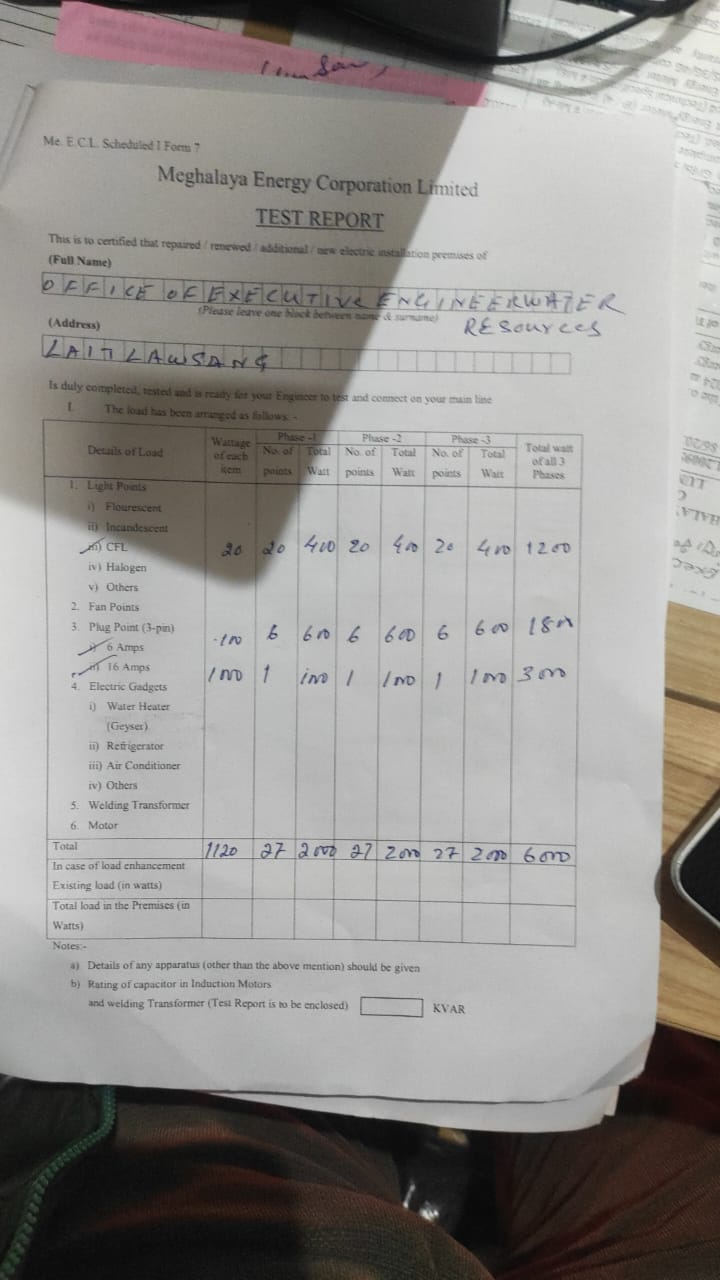 Me. E.C.L. Scheduled I Form 7
Meghalaya Energy Corporation Limited
TEST REPORT
This is to certified that repaired / renewed / additional / new electric installation premises of
(Full Name)
OFFICE OF EXECUTIVE ENGINEER WATER
(Please leave one block between name & surname)
RESources
(Address)
LAITLAWSANG
Is duly completed, tested and is ready for your Engineer to test and connect on your main line
1. The load has been arranged as follows: -
Details of Load Wattage of each item Phase -1 Phase -2 Phase -3 Total watt of all 3 Phases
No. of points Total Watt No. of points Total Watt No. of points Total Watt
1. Light Points
i) Flourescent
ii) Incandescent
iii) CFL 20 20 400 20 400 20 400 1200
iv) Halogen
v) Others
2. Fan Points
3. Plug Point (3-pin)
i) 6 Amps 100 6 600 6 600 6 600 1800
ii) 16 Amps 1000 1 1000 1 1000 1 1000 3000
4. Electric Gadgets
i) Water Heater
(Geyser)
ii) Refrigerator
iii) Air Conditioner
iv) Others
5. Welding Transformer
6. Motor
Total 1120 27 2000 27 2000 27 2000 6000
In case of load enhancement
Existing load (in watts)
Total load in the Premises (in
Watts)
Notes:-
a) Details of any apparatus (other than the above mention) should be given
b) Rating of capacitor in Induction Motors
and welding Transformer (Test Report is to be enclosed) KVAR